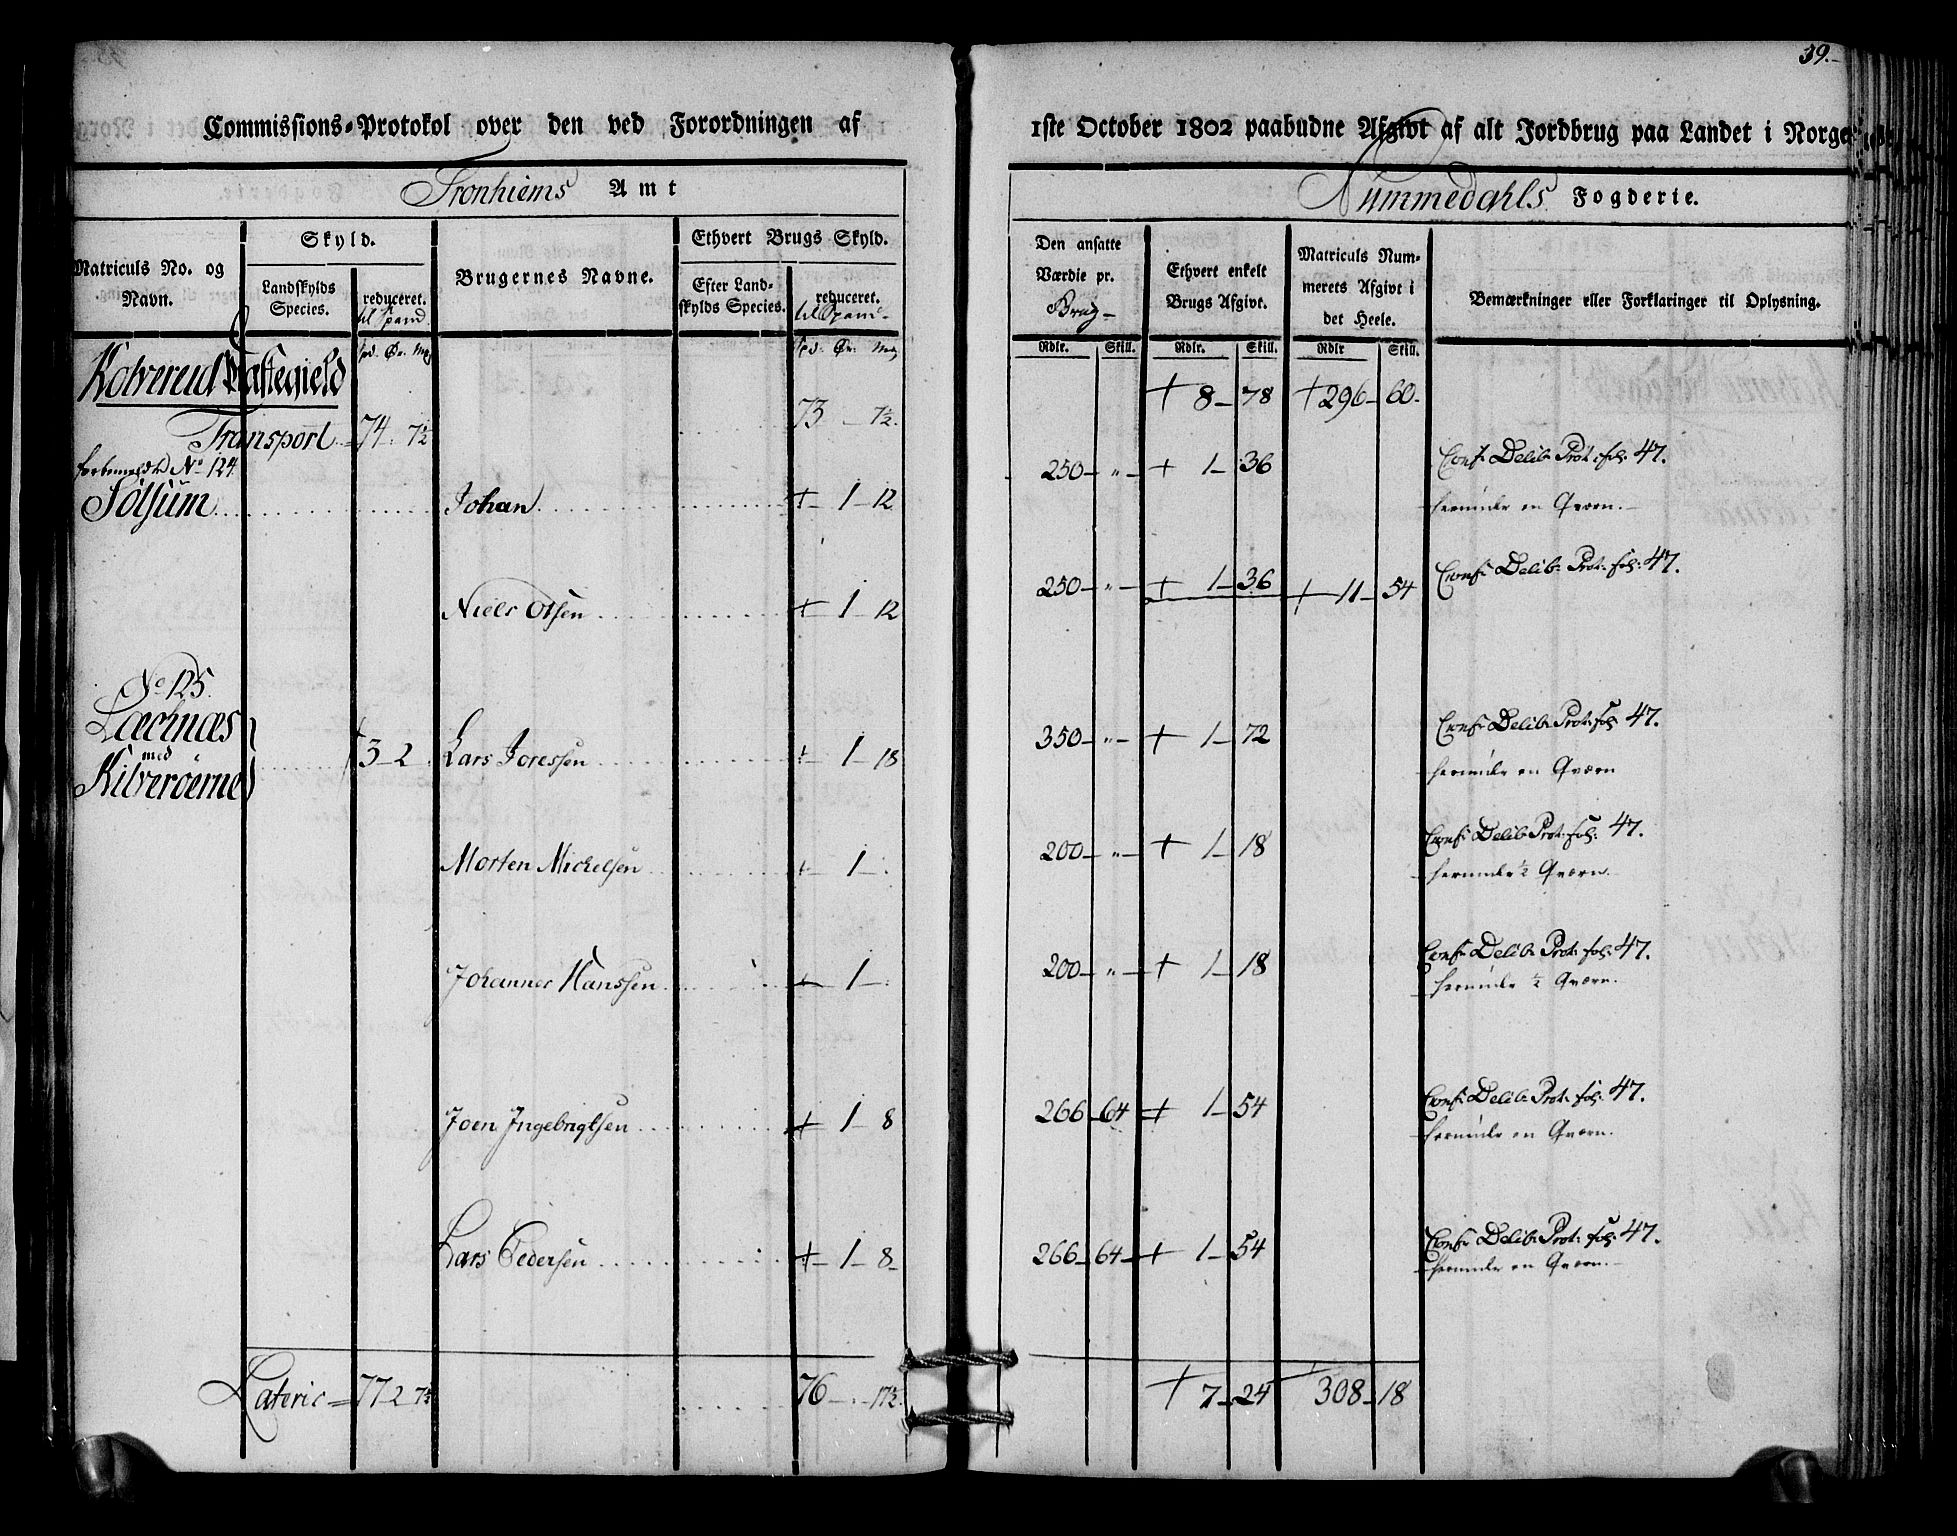 39.-
Commissions-Protokol over den ved Forordningen af 1ste October 1802 paabudne Afgivt af alt Jordbrug paa Landet i Norge
Tronhiems Amt
Nummedahls Fogderie.
Matriculs No. og Navn.
Skyld.
Landskylds Species.
reduceret. til Spand.
Brugernes Navne.
Ethvert Brugs Skyld.
Efter Landskylds Species.
reduceret. til Spand.
Den ansatte Værdie pr. Brug
Ethvert enkelt Brugs Afgivt.
Matriculs Nummerets Afgivt i det Heele.
Bemærkninger eller Forklaringer til Oplysning.
Spd. Ør. Mk Spd. Ør. Mk Rdlr. Skill. Rdlr. Skill. Rdlr Skill.
Kolvereid Præstegield
Transport 74 . 7½ 73 — 7½. + 8 — 78 + 296 — 60.
No 124
250 — " — + 1 — 36 Conf: Delib: Prot: fol: 47.
Solsum Johan + 1 — 12 herunder en Qværn.
250 — " — + 1 — 36 + 11 — 54 Conf: Delib: Prot: fol: 47.
Niels Olsen + 1 — 12
No 125.
Lecknæs
med
Kilverøerne
3 — 2 Lars Joressen + 1 — 18 350 — " — + 1 — 72 Conf: Delib: Prot: fol: 47.
herunder en Qværn
Morten Michelsen + 1 — . 200 — " — + 1 — 18 Conf: Delib: Prot: fol: 47.
herunder ½ Qværn.
Johannes Hanssen + 1 — . 200 — " — + 1 — 18 Conf: Delib: Prot: fol: 47.
herunder ½ Qværn.
Joen Ingebrigtsen + 1 — 8 266 — 64 + 1 — 54 Conf: Delib: Prot: fol: 47.
herunder en Qværn.
Lars Pedersen + 1 — 8 266 — 64 — + 1 — 54 Conf: Delib: Prot: fol: 47.
herunder en Qværn.
Lateris = 77 — 2 7½ 76 — . — 17½. + 7 — 24 + 308 — 18